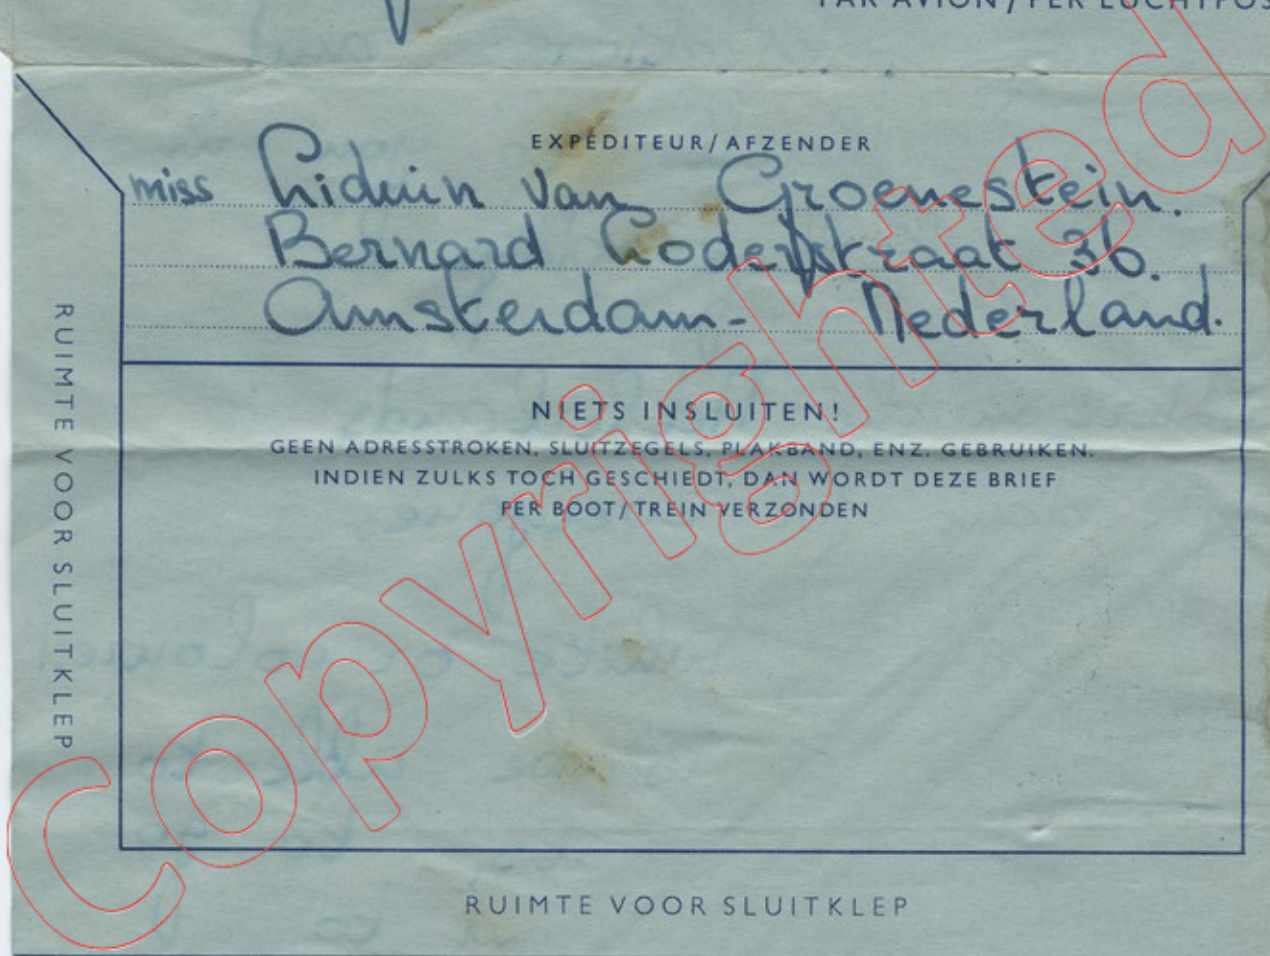 PAR AVION / PER LUCHTPOS
EXPÉDITEUR/AFZENDER
miss Liduin van Groenestein.
Bernard Loderstraat 36.
Amsterdam - Nederland.
NIETS INSLUITEN!
GEEN ADRESSTROKEN, SLUITZEGELS, PLAKBAND, ENZ. GEBRUIKEN.
INDIEN ZULKS TOCH GESCHIEDT, DAN WORDT DEZE BRIEF
PER BOOT/TREIN VERZONDEN
RUIMTE VOOR SLUITKLEP
RUIMTE VOOR SLUITKLEP
Copyrighted